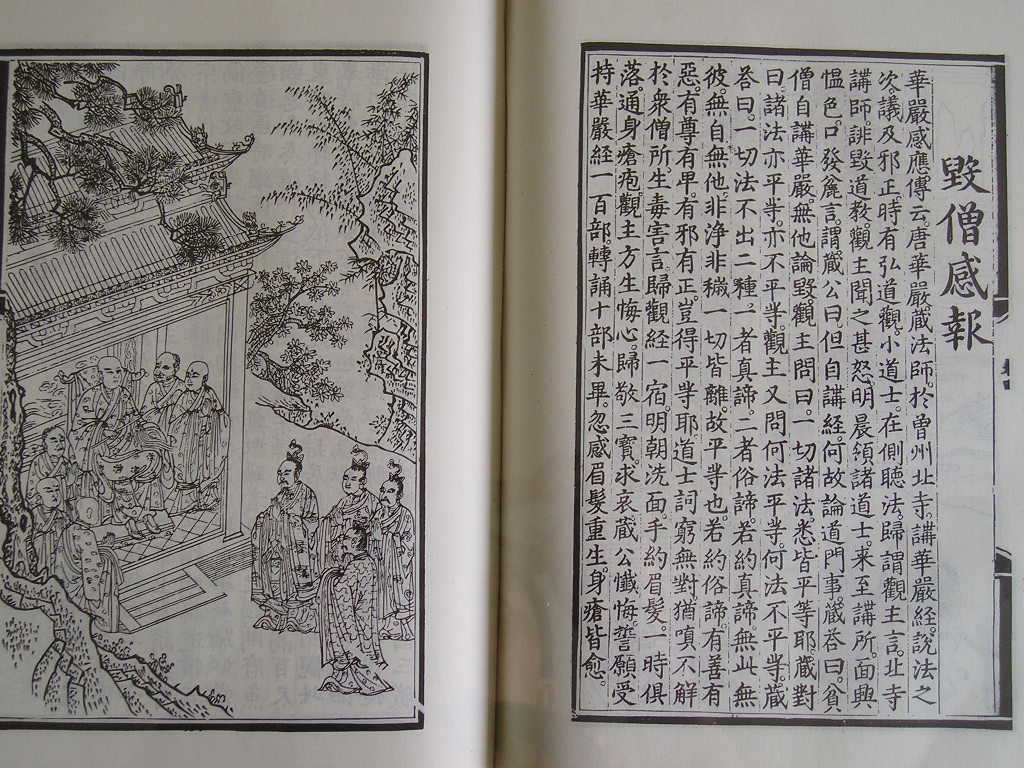 毀僧感報
華嚴感應傳云。唐華嚴藏法師。於曾州北寺。講華嚴經。說法之
次。議及邪正。時有弘道觀。小道士。在側聽法。歸謂觀主言。北寺
講師誹毀道教。觀主聞之甚怒。明晨領諸道士來至講所。面興
慍色。口發麁言。謂藏公曰。但自講經。何故論道門事。藏答曰。貧
僧自講華嚴。無他論毀。觀主問曰。一切諸法。悉皆平等耶。藏對
曰。諸法亦平等。亦不平等。觀主又問。何法平等。何法不平等。藏
答曰。一切法不出二種。一者真諦。二者俗諦。若約真諦。無此無
彼。無自無他。非淨非穢。一切皆離。故平等也。若約俗諦。有善有
惡。有尊有卑。有邪有正。豈得平等耶。道士詞窮無對。猶嗔不解。
於衆僧所。生毒害言。歸觀經一宿。明朝洗面。手約眉髮。一時俱
落。通身瘡疱。觀主方生悔心。歸敬三寶。求哀藏公懺悔。誓願受
持華嚴經一百部。轉誦十部未畢。忽感眉髮重生。身瘡皆愈。